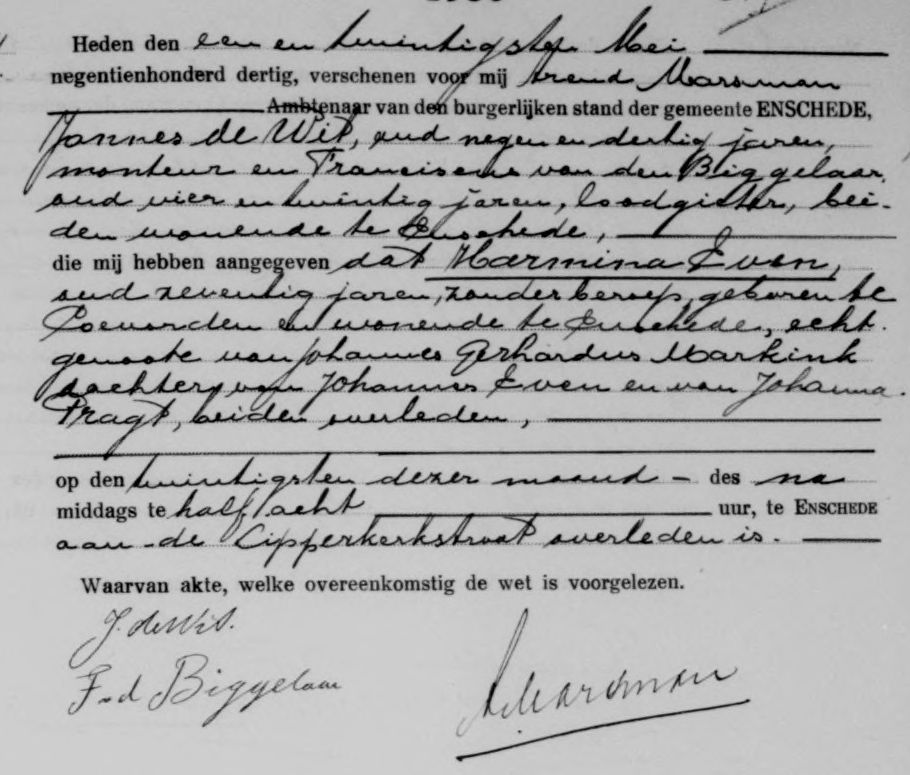 Heden den een en twintigsten Mei
negentienhonderd dertig, verschenen voor mij Arend Marsman
Ambtenaar van den burgerlijken stand der gemeente ENSCHEDE,
Jannes de Wit, oud negen en dertig jaren,
monteur en Franciscus van den Biggelaar,
oud vier en twintig jaren, loodgieter, bei-
den wonende te Enschede,
die mij hebben aangegeven dat Harmina Even,
oud zeventig jaren, zonder beroep, geboren te
Coevorden en wonende te Enschede, echt-
genoote van Johannes Gerhardus Markink
dochter van Johannes Even en van Johanna
Pragt, beiden overleden,
op den twintigsten dezer maand - des na
middags te half acht uur, te ENSCHEDE
aan de Lipperkerkstraat overleden is.
Waarvan akte, welke overeenkomstig de wet is voorgelezen.
J. de Wit.
F. v d Biggelaar
A. Marsman